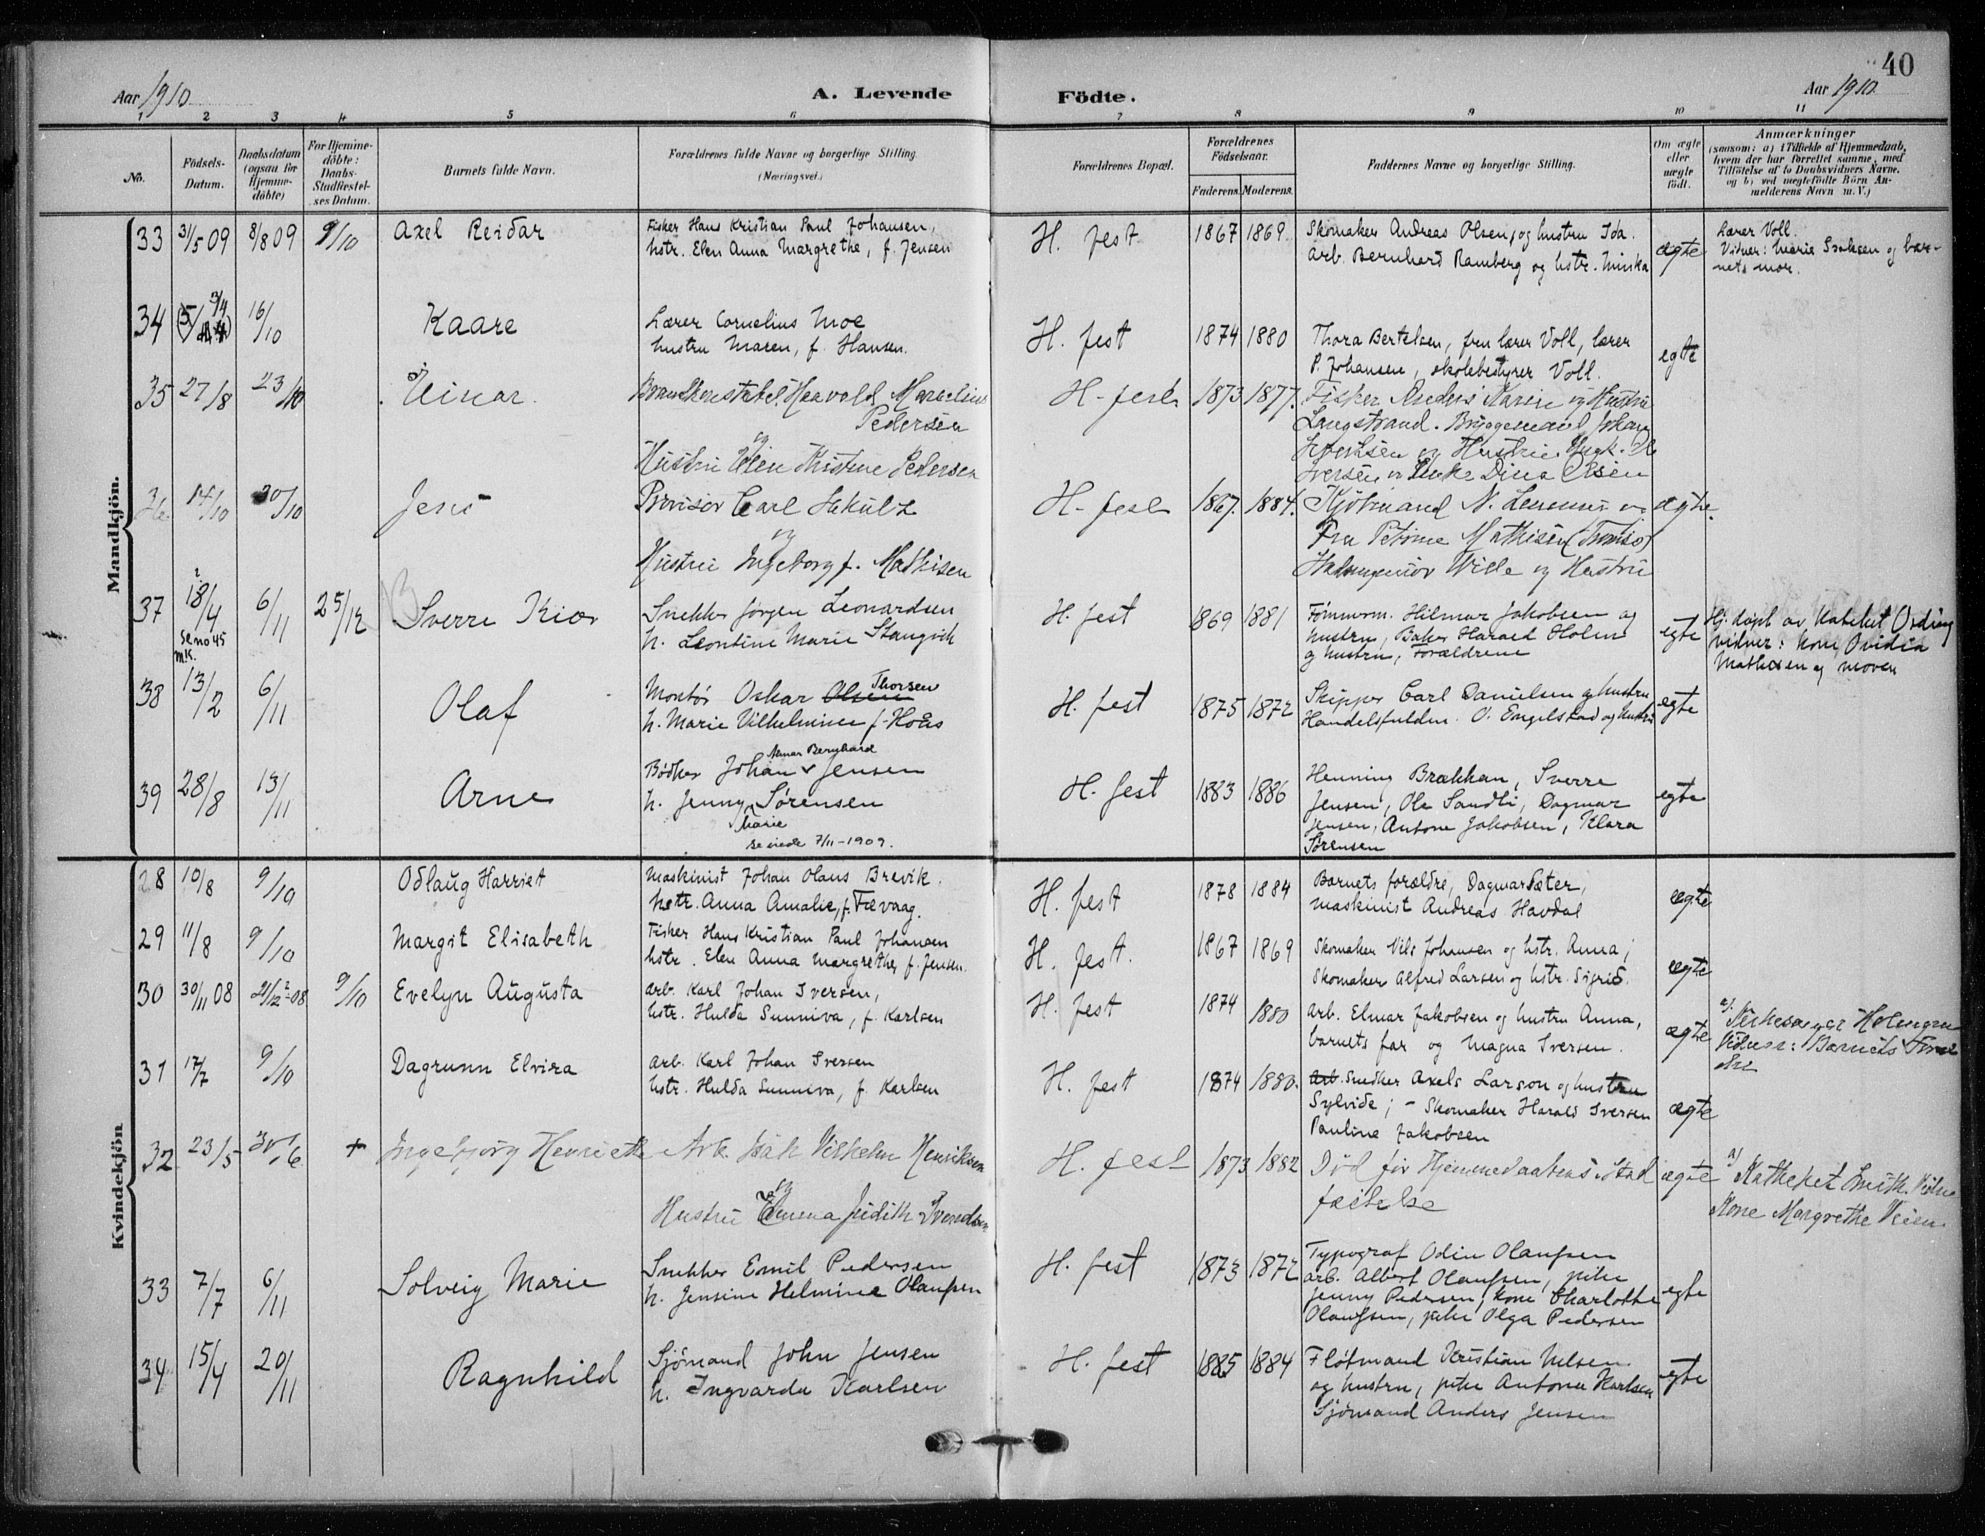 40
Aar 1910
A. Levende Födte.
Aar 1910
1 2 3 4 5 6 7 8 9 10 11
No.
Födsels-Datum.
Daabsdatum (ogsaa for Hjemmedöbte)
For Hjemmedöbte: Daabs-Stadfæstelses Datum.
Barnets fulde Navn.
Forældrenes fulde Navne og borgerlige Stilling
(Næringsvei.)
Forældrenes Bopæl.
Forældrenes Födselsaar.
Faderens. Moderens.
Faddernes Navne og borgerlige Stilling.
Om ægte eller uægte födt.
Anmærkninger
(saasom: a) i Tilfælde af Hjemmedaab, hvem der har forrettet samme, med Tilföielse af to Daabsvidners Navne. og b) ved uægtefödte Börn Anmelderens Navn m. V.)
Mandkjön.
33 31/5 09 8/8 09 9/10 Axel Reidar
Fisker Hans Kristian Paul Johansen,
hstr. Elen Anna Margrethe, f. Jensen
H. fest 1867 1869
Skomaker Andreas Olsen, og hustru Ida.
Arb. Bernhard Ramberg og hstr. Minka
ægte
Lærer Voll.
Vidner: Marie Isaksen og bar-
nets mor.
34 16/10 Kaare
Lærer Cornelius Moe
hustru Maren, f. Hansen.
H. fest 1874 1880
Thora Bertelsen, fru lærer Voll, lærer
P. Johansen, skolebestyrer Voll.
egte
35 27/8 23/10 Einar
Brandkonstabel Haavald Marelius
Pedersen
og
Hustru Elen Kristine Pedersen
H. fest 1873 1877.
Fisker Anders Karin og Hustru
Langstrand. Bryggemand Johan
og Hustru
Iversen og Enke Dina Olsen
36 14/10 30/10 Jens
Provisor Carl Schultz
og
Hustru Ingeborg f. Mathisen
H. fest 1867. 1884.
Kjøbmand N. og
Fru Petrine Mathisen (Tromsø)
Wille og Hustru
ægte.
37 18/4 6/11 25/12 Sverre Kiær
se no 45
m.k.
Snekker Jørgen Leonardsen
h. Leontine Marie Stangvik
H. fest 1869 1881
Tømmerm. Hilmar Jakobsen og
hustru, Baker Harald Holm
og hustru, Forældrene
egte
Hj. døpt av Katekét Ording
vidner: kone Ovidia
Mathisen og moren
38 13/2 6/11 Olaf
Montør Oskar Olsen Thorsen
h. Marie Vilhelmine f. Hoås
H. fest 1875 1872
Skipper Carl Danielsen og hustru
Handelsfuldm. O. Engelstad og hustru
egte
39 28/8 13/11 Arne
Almar Bernhard
Bødker Johan Jensen
h. Jenny Sørensen
Marie
se viede 7/11-1909.
H. fest 1883 1886
Henning Brækkan, Sverre
Jensen, Ole Sandli, Dagmar
Jensen, Antone Jakobsen, Klara
Sørensen
egte
Kvindekjön
28 10/8 9/10 Odlaug Harriet
Maskinist Johan Olaus Brevik.
hstr. Anna Amalie, f. Fævaag.
H. fest 1878 1884
Barnets forældre, Dagmar Sæter,
maskinist Andreas Havdal
ægte
29 11/8 9/10 Margit Elisabeth
Fisker Hans Kristian Paul Johansen
hstr. Elen Anna Margrethe, f. Jensen.
H. fest. 1867 1869
Skomaker Nils Johansen og hstr. Anna;
Skomaker Alfred Larsen og hstr. Sigrid.
ægte
30 30/11 08 9/10 Evelyn Augusta
Arb. Karl Johan Iversen,
hstr. Hulda Sunniva, f. Karlsen
H. fest 1874 1880
Arb. Elmar Jakobsen og hustru Anna,
barnets far og Magna Iversen.
ægte
a). Kirkesanger Holmgren
Vidner: Barnets
31 17/7 9/10 Dagrunn Elvira
Arb. Karl Johan Iversen
hstr. Hulda Sunniva, f. Karlsen
H. fest 1874 1880.
Arb. Snedker Axels Larson og hustru
Sylvide; - Skomaker Harald Iversen
Pauline Jakobsen
ægte
32 23/5 + Ingebjørg Henriette
Arb. Isak Vilhelm Henriksen
og
Hustru Emma Judith Svendsen
H. fest 1873 1882
Død før Hjemmedaabens Stad
fæstelse
ægte
a) Kathekét Smith. Vidne
Kone Margrethe
33 7/7 6/11 Solveig Marie
Snekker Emil Pedersen
h. Jensine Helmine Olaussen
H. fest 1873 1872
Typograf Odin Olaussen
arb. Albert Olaussen, pike
Jenny Pedersen, kone Charlotte
Olaussen, pike Olga Pedersen
egte
34 15/4 20/11 Ragnhild
Sjømand John Jensen
h. Ingvarda Karlsen
H. fest 1885 1884
Fløtmand Kristian Nilsen
og hustru, pike Antona Karlsen
Sjømand Anders Jensen
egte